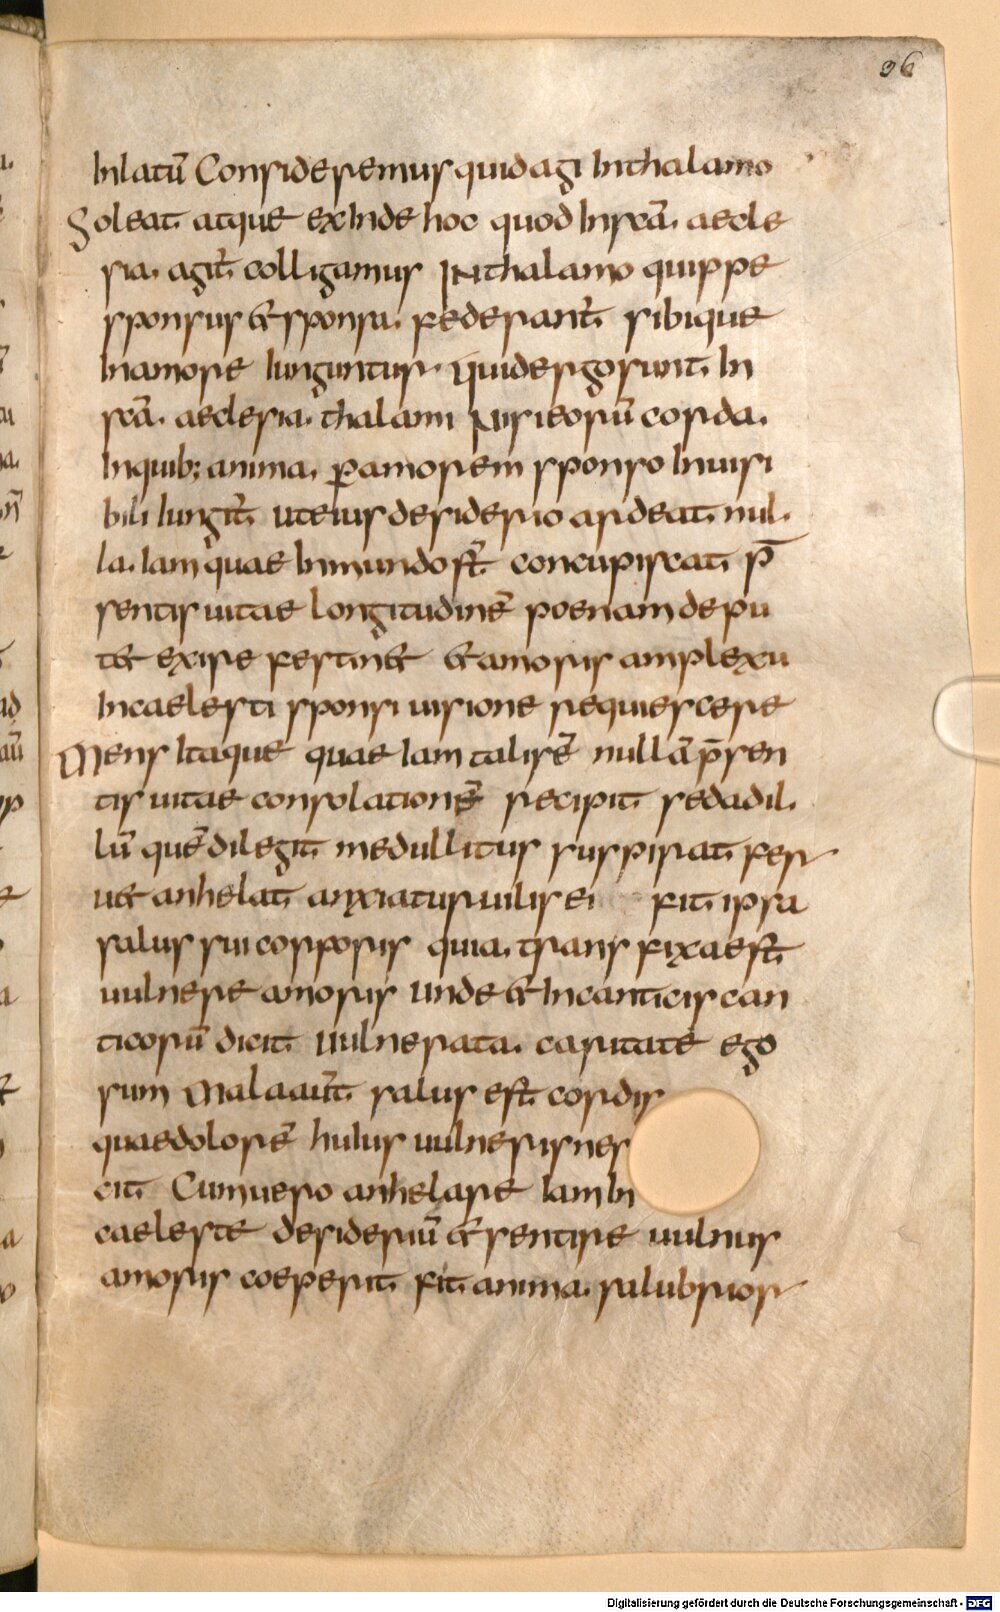 96
Inlatū Consideremus quid agi Inthalamo
Soleat atque exInde hoc quod Inscā aecle
sia agit̄ colligamus INthalamo quippe
sponsus & sponsa federant̄ sibique
Inamore Iunguntur. quid ergo sunt In
scā aeclesia thalami Nisi eorū corda.
Inquib; anima ꝑamorem sponso Inuisi
bili Iungit̄ ut eius desiderio ardeat nul
la Iam quae Inmundo st̄ concupiscat p̄
sentis uitae longitudinē poenam depu
t& exire festin& & amoris amplexu
Incaelesti sponsi uisione requiescere
Mens Itaque quae Iam talis ē nullā p̄sen
tis uitae consolationē recipit sed ad il
lū quē dilegit medullitus suspirat fer
u& anhelat anxiatur uilis ei fit ipsa
salus sui corporis quia transfixa est
uulnere amoris unde & Incanticis can
ticorū dicit Uulnerata caritate ego
sum Mala aut̄ salus est cordis
quae dolorē huIus uulneris nes
cit Cum uero anhelare Iam In
caeleste desideriū & sentire uulnus
amoris coeperit fit anima salubrior
Digitalisierung gefördert durch die Deutsche Forschungsgemeinschaft - DFG